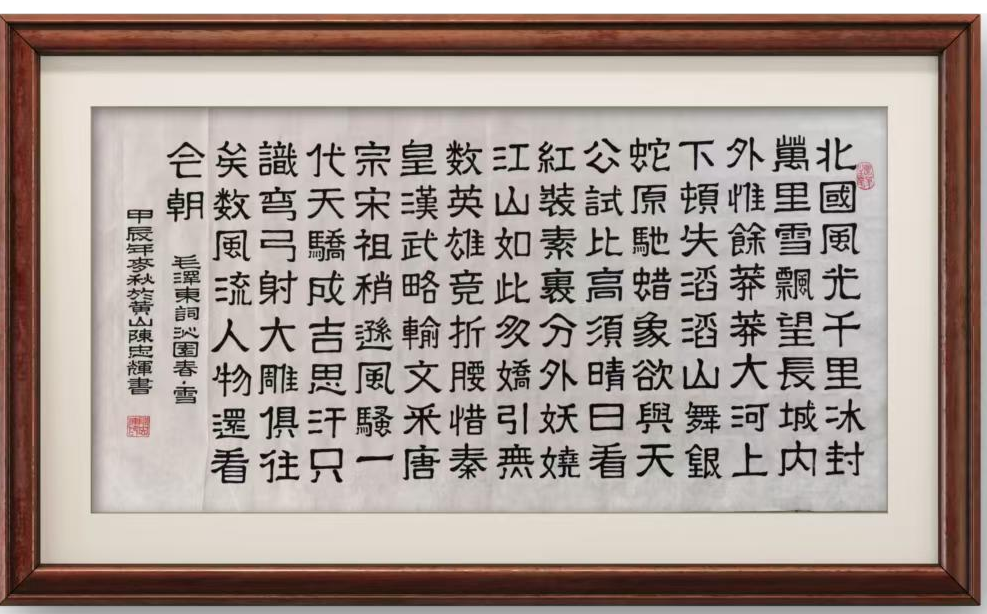 北國風光千里冰封
萬里雪飄望長城内
外惟餘莽莽大河上
下頓失滔滔山舞銀
蛇原馳蜡象欲與天
公試比高須晴日看
紅裝素裹分外妖嬈
江山如此多嬌引無
数英雄竞折腰惜秦
皇漢武略輸文采唐
宗宋祖稍遜風騷一
代天驕成吉思汗只
識彎弓射大雕俱往
矣数風流人物還看
今朝
毛澤東詞沁園春·雪
甲辰年麥秋於黄山陳忠輝書